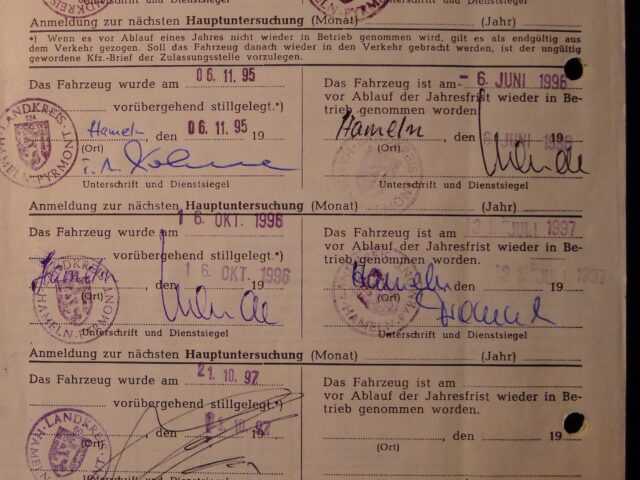 Anmeldung zur nächsten Hauptuntersuchung (Monat) (Jahr)
*) Wenn es vor Ablauf eines Jahres nicht wieder in Betrieb genommen wird, gilt es als endgültig aus
dem Verkehr gezogen. Soll das Fahrzeug danach wieder in den Verkehr gebracht werden, ist der ungültig
gewordene Kfz.-Brief der Zulassungsstelle vorzulegen.
Das Fahrzeug wurde am 06. 11. 95
vorübergehend stillgelegt.*)
Hameln, den 06. 11. 95 19
(Ort)
LANDKREIS HAMELN-PYRMONT
Unterschrift und Dienstsiegel
Das Fahrzeug ist am - 6. JUNI 1996
vor Ablauf der Jahresfrist wieder in Be-
trieb genommen worden.
Hameln, den 6. JUNI 1996 19
(Ort)
Unterschrift und Dienstsiegel
Anmeldung zur nächsten Hauptuntersuchung (Monat) (Jahr)
Das Fahrzeug wurde am 16. OKT. 1996
vorübergehend stillgelegt.*)
Hameln, den 16. OKT. 1996
(Ort)
LANDKREIS HAMELN-PYRMONT
Unterschrift und Dienstsiegel
Das Fahrzeug ist am JULI 1997
vor Ablauf der Jahresfrist wieder in Be-
trieb genommen worden.
Hameln, den JULI 1997
(Ort)
Unterschrift und Dienstsiegel
Anmeldung zur nächsten Hauptuntersuchung (Monat) (Jahr)
Das Fahrzeug wurde am 21. 10. 97
vorübergehend stillgelegt.*)
, den 10. 97 19
LANDKREIS HAMELN
Das Fahrzeug ist am
vor Ablauf der Jahresfrist wieder in Be-
trieb genommen worden.
, den 19
(Ort)